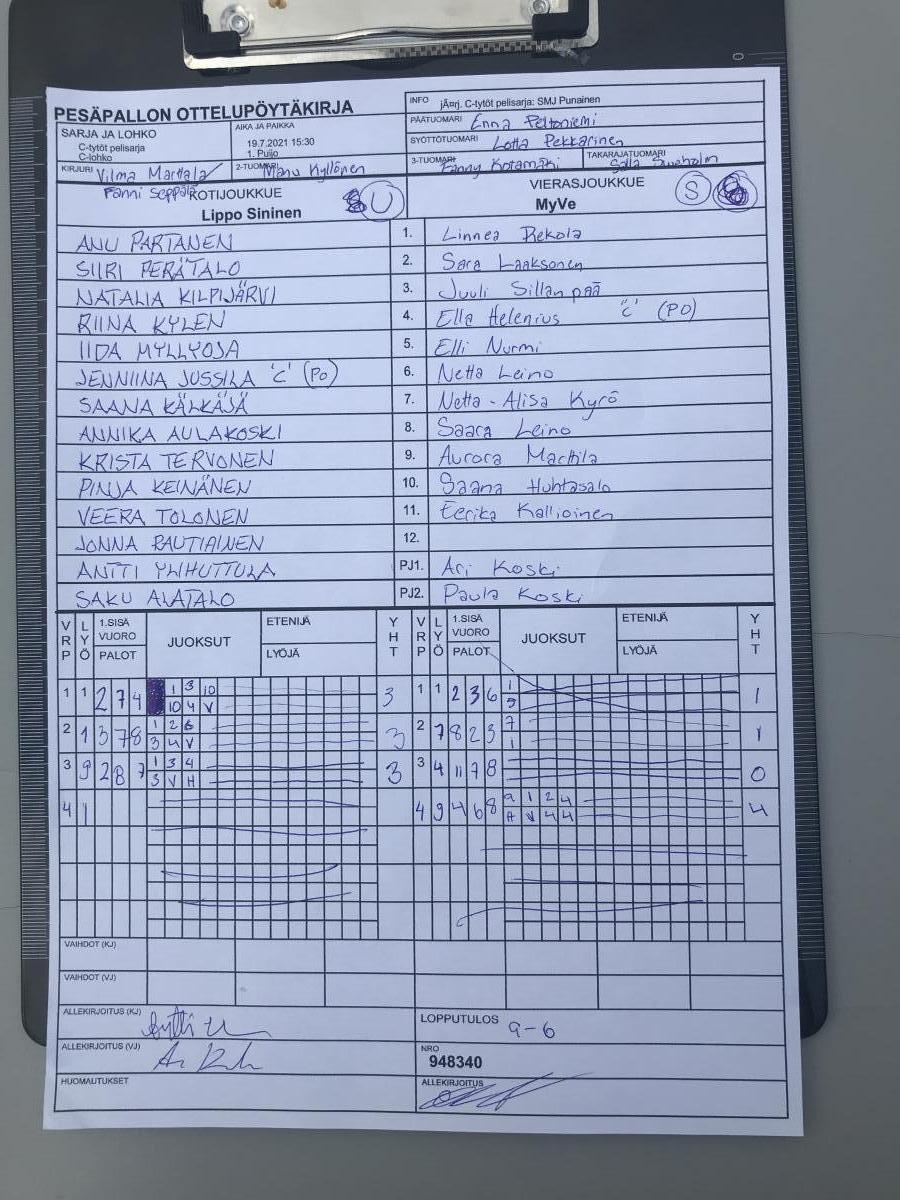 PESÄPALLON OTTELUPÖYTÄKIRJA
INFO jÄ¤rj. C-tytöt pelisarja: SMJ Punainen
SARJA JA LOHKO
C-tytöt pelisarja
C-lohko
AIKA JA PAIKKA
19.7.2021 15:30
1. Puijo
PÄÄTUOMARI Enna Peltoniemi
SYÖTTÖTUOMARI Lotta Pekkarinen
KIRJURI Vilma Marttala
Fanni Seppälä
2-TUOMARI Manu Kyllönen
3-TUOMARI Fanny Kotamäki
TAKARAJATUOMARI Salla
KOTIJOUKKUE U
Lippo Sininen
VIERASJOUKKUE S
MyVe
ANU PARTANEN 1. Linnea Rekola
SIIRI PERÄTALO 2. Sara Laaksonen
NATALIA KILPIJÄRVI 3. Juuli Sillanpää
RIINA KYLEN 4. Ella Helenius "C" (PO)
IIDA MYLLYOJA 5. Elli Nurmi
JENNIINA JUSSILA 'C' (PO) 6. Netta Leino
SAANA KÄLKÄJÄ 7. Netta-Alisa Kyrö
ANNIKA AULAKOSKI 8. Saara Leino
KRISTA TERVONEN 9. Aurora Marttila
PINJA KEINÄNEN 10. Saana Huhtasalo
VEERA TOLONEN 11. Eerika Kallioinen
JONNA RAUTIAINEN 12.
ANTTI YLIHUTTULA PJ1. Ari Koski
SAKU ALATALO PJ2. Paula Koski
VRP LYÖ 1.SISÄ VUORO PALOT JUOKSUT ETENIJÄ LYÖJÄ YHT VRP LYÖ 1.SISÄ VUORO PALOT JUOKSUT ETENIJÄ LYÖJÄ YHT
1 1 2 7 4 1 3 10 3 1 1 2 3 6 1 1
10 4 V 9
2 1 3 7 8 1 2 6 3 2 7 8 2 3 7 1
3 4 V 1
3 9 2 8 7 1 3 4 3 3 4 11 7 8 0
3 V H
4 1 4 9 4 6 8 9 1 2 4 4
A V 4 4
VAIHDOT (KJ)
VAIHDOT (VJ)
ALLEKIRJOITUS (KJ)
LOPPUTULOS 9-6
ALLEKIRJOITUS (VJ)
NRO
948340
HUOMAUTUKSET
ALLEKIRJOITUS